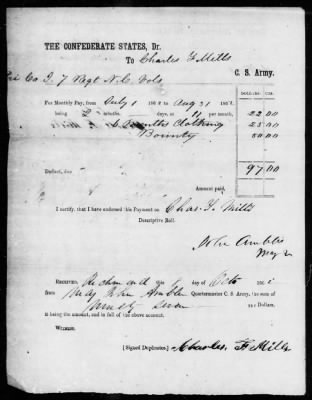 THE CONFEDERATE STATES, Dr.
To Charles F Mills
Pri Co I. 7 Regt N.C. Vols C. S. Army.
DOLLARS. CTS.
For Monthly Pay, from July 1 186 to Aug 31 186
being 2 months days, at 11 per month, 22 00
6 Months Clothing 25 00
Bounty 50 00
97 00
Deduct, due
Amount paid,
I certify, that I have endorsed this Payment on Chas. F. Mills
Descriptive Roll.
John Ambler
Maj
RECEIVED, Richmond day of Octo 186
from Maj John Ambler Quartermaster C. S. Army, the sum of
Ninety Seven Dollars,
it being the amount, and in full of the above account.
WITNESS:
[Signed Duplicates,] Charles F Mills